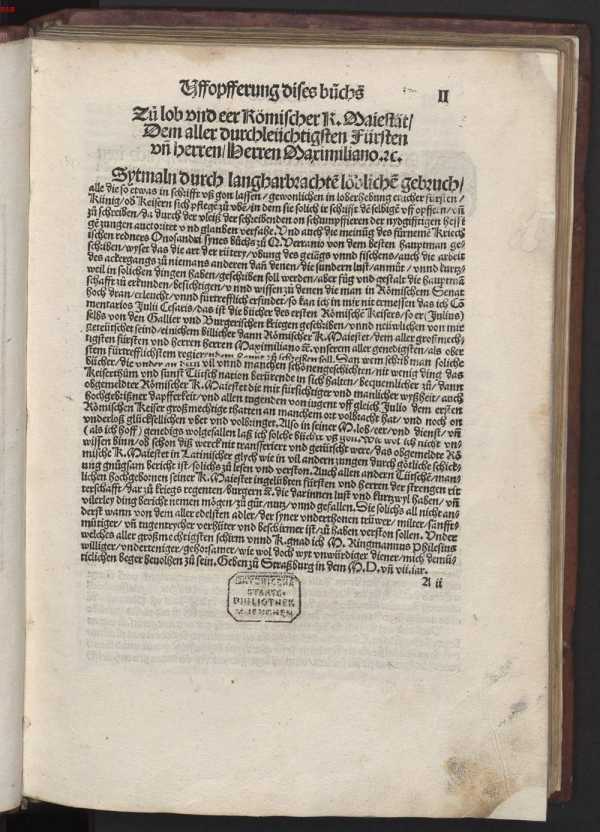 Uffopfferung dises bůchs̄ II
Zů lob vnd eer Römischer K. Maiestāt/
Dem aller durchleüchtigsten Fürsten
vn̄ herren/Herren Maximiliano.ꝛc.
Sytmaln durch langharbrachtē löblichē gebruch/
alle die so etwas in schrifft vß gon lassen/gewonlichen in loberhebung etlicher fürsten/
Künig/ob Keisern sich pflegē zů vbē/in dem sie solich ir schrifft dē selbigē vff opffern/vn̄
zů schreiben/da durch der vleiß der schreibenden on schumpffieren der nydgifftigen
gezungen auctoritet vnd glauben verfaße. Vnd auch die meinūg des fürnemē Kriech
ischen redners Onosandri synes bůchs zů Q. Verranio von dem besten hauptman ge-
schriben/wyser das die art der rütery/vbung des geiägs vnnd fischens/auch die arbeit
des ackergangs zů niemans anderen dan̄ denen/die sundern lust/anmůt/vnnd kurtz-
weil in solichen dingen haben/geschriben soll werden/aber fůg vnd gestalt die hauptmā
schafft zů erkunden/besichtigen/vnnd wissen zů denen die man in Römischem Senat
hoch dran/erleücht/vnnd fürtrefflich erfinder/so kan ich in mir nit ermessen das ich Cō
mentarios Julii Cesaris/das ist die bücher des ersten Römischē Keisers/so er (Julius)
selbs von den Gallier vnd Burgerischen kriegen geschriben/vnnd neüwlichen von mir
geteütschet seind/einichem billicher dann Römischer K. Maiestet/dem aller großmech-
tigsten fürsten vnd herren herren Maximiliano ꝛc. vnserem aller genedigsten/als ober
sten fürtrefflichstem regier/
bücher/die vnder an vil vnnd manchen schönengeschichten/nit wenig ding das
Keiserthům vnd sunst Tütsch nation berürende in sich halten/bequemlicher zů/dann
obgemelter Römischer K. Maiestet die mit fürsichtiger vnd manlicher wyßheit/auch
hochgebrißner dapfferkeit/vnd allen tugenden von iugent vff gleich Julio dem ersten
Römischen Keiser großmechtige thatten an manchem ort volbracht hat/vnd noch on
vnderloß glücksellichen vbet vnd volbringet. Also in seiner M. lob/eer/vnd dienst/vn̄
(als ich hoff) genedigs wolgefallen laß ich solche bücher vß gon. Wie wol ich nicht vn-
wissen binn/ob schon diß werck nit transferiert vnd gerütscht wer/das obgemelte Rö
mische K. Maiestet in Latinischer glych wie in vil andern zungen durch götliche schick-
ung gnůgsam bericht ist/solichs zů lesen vnd verston. Auch allen andern Tütschē/man-
lichen hochgebornen seiner K. Maiestet ingelübten fürsten vnd herren der strengen rit
terschafft/dar zů kriegs regenten/burgern ꝛc. die darinnen lust vnd kurtzwyl haben/vn̄
vilerley ding bericht nemen mögen/zů gůt/nutz/vnnd gefallen. Sie solichs all nicht an-
derst wann von dem aller edelsten adler/der syner vnderthonen trüwer/milter/sanfft-
mütiger/vn̄ tugentrycher verhüter vnd beschirmer ist/zů haben verston sollen. Vnder
welches aller großmechtigsten schirm vnnd K. gnad ich M. Ringmannus Philesius
williger/vnderteniger/gehorsamer/wie wol doch wyt vnwürdiger diener/mich demü-
ticlichen beger beuolhen zů sein. Geben zů Straßburg in dem M.D. vn̄ vii. iar.
A ii
BAYERISCHE
STAATS-
BIBLIOTHEK
MUENCHEN